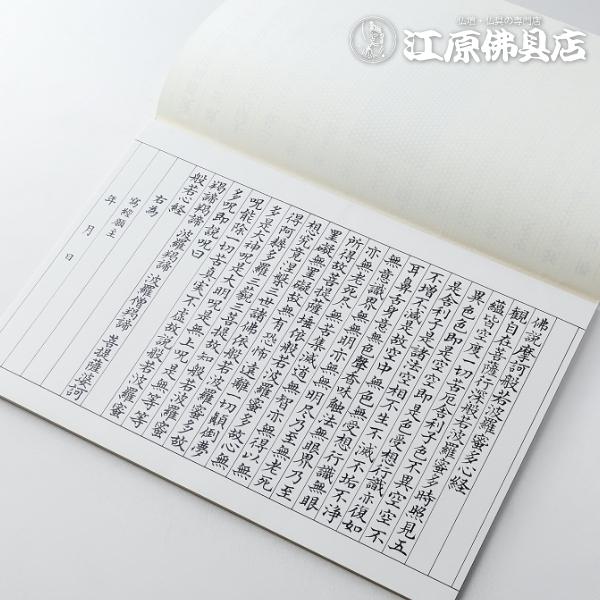 仏壇・仏具の専門店
江原佛具店
佛説摩訶般若波羅蜜多心経
觀自在菩薩行深般若波羅蜜多時照見五
蘊皆空度一切苦厄舎利子色不異空空不
異色色即是空空即是色受想行識亦復如
是舎利子是諸法空相不生不滅不垢不浄
不増不減是故空中無色無受想行識無眼
耳鼻舌身意無色聲香味觸法無眼界乃至
無意識界無無明亦無無明尽乃至無老死
亦無老死尽無苦集滅道無智亦無得以無
所得故菩提薩埵依般若波羅蜜多故心無
罣礙無罣礙故無有恐怖遠離一切顛倒夢
想究竟涅槃三世諸佛依般若波羅蜜多故
得阿耨多羅三藐三菩提故知般若波羅蜜
多是大神呪是大明呪是無上呪是無等等
呪能除一切苦真実不虚故説般若波羅蜜
多呪即説呪曰
羯諦羯諦 波羅羯諦 波羅僧羯諦 菩提薩婆訶
般若心経
右為
寫経願主
年 月 日